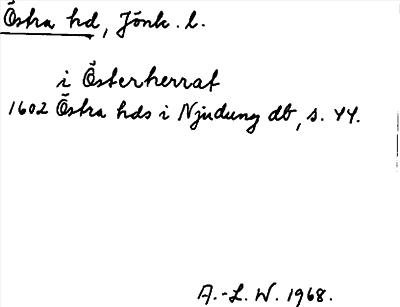 Östra hd, Jönk. l.
i Österherrat
1602 Östra hds i Njudung db, s. 44.
A.-L. W. 1968.